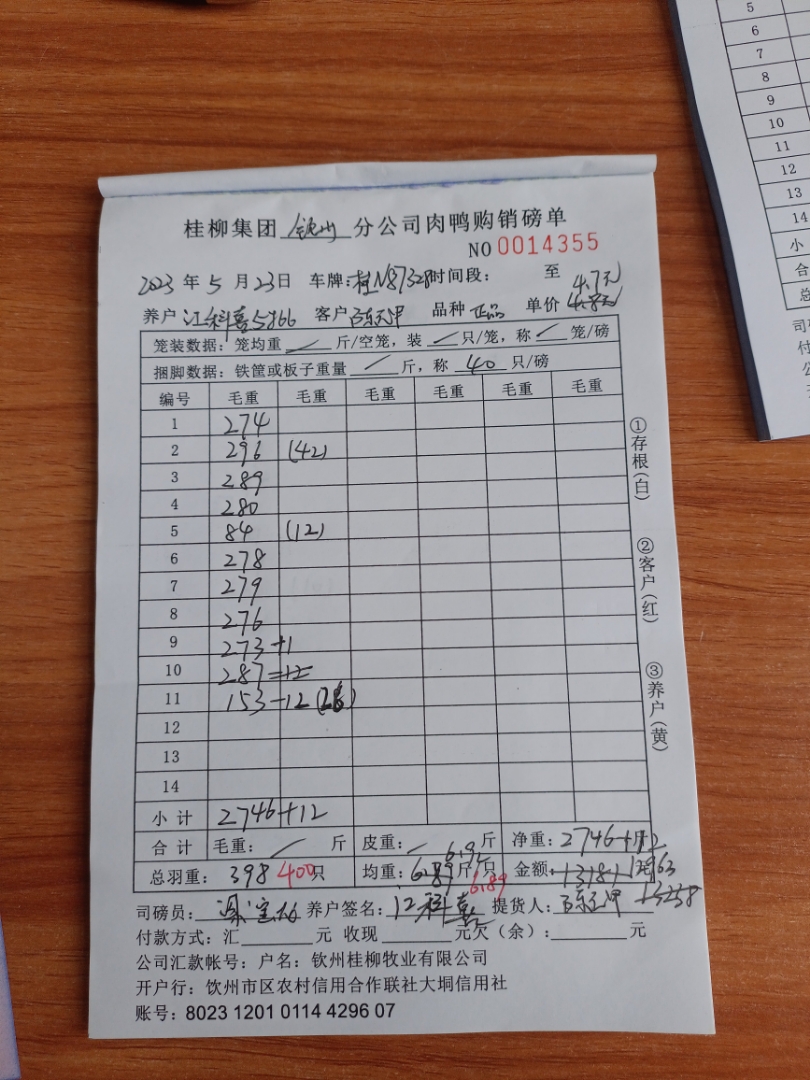 桂柳集团 钦州 分公司肉鸭购销磅单
NO 0014355
2023 年 5 月 23 日 车牌:桂N87328 时间段: 至
4.7元
养户 江科喜5766 客户 陈 品种 正品 单价 4.8元
笼装数据: 笼均重 斤/空笼, 装 只/笼, 称 笼/磅
捆脚数据: 铁筐或板子重量 斤, 称 40 只/磅
编号 毛重 毛重 毛重 毛重 毛重 毛重
1 274
2 296 (42)
3 289
4 280
5 84 (12)
6 278
7 279
8 276
9 273+1
10 287-12
11 153-12
12
13
14
小计 2746+12
合计 毛重: 斤 皮重: 斤 净重: 2746+12
6.92
总羽重: 398 400 只 均重: 6.89 斤/只 金额:
6.89
13258
司磅员: 养户签名: 江科喜 提货人: 陈
付款方式: 汇 元 收现 元欠(余): 元
公司汇款帐号: 户名: 钦州桂柳牧业有限公司
开户行: 钦州市区农村信用合作联社大垌信用社
账号: 8023 1201 0114 4296 07
①存根(白)
②客户(红)
③养户(黄)
5
6
7
8
9
10
11
12
13
14
小
合
总
司
付
公